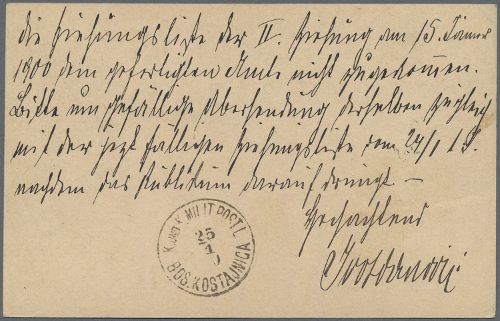 die Ziehungsliste der II. Ziehung am 15. Jänner
1900 dem gefertigten Amte nicht zugekommen.
Bitte um gefällige Übersendung derselben zugleich
mit der jetzt fälligen Ziehungsliste vom 24/1
nachdem das Publikum darauf drängt —
Hochachtend
K. UND K. MILIT. POST L.
25
1
BOS. KOSTAJNICA